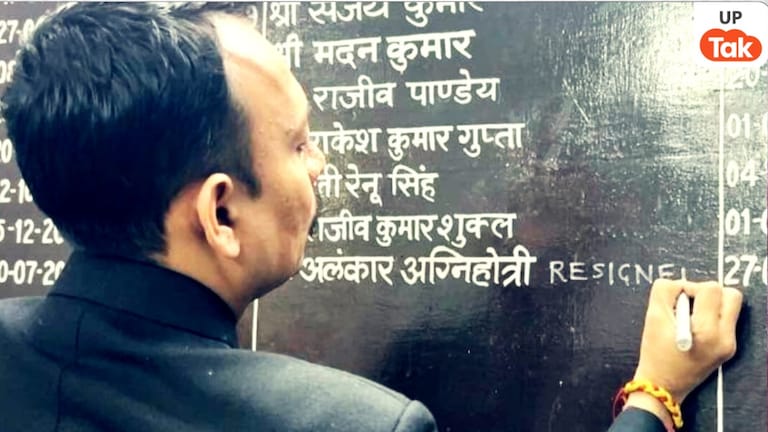 27-0 श्री संजय कुमार
श्री मदन कुमार
राजीव पाण्डेय
राकेश कुमार गुप्ता 01-0
2-10 रेनू सिंह 04-
5-12-20 राजीव कुमार शुक्ल 01-0
0-07-20 अलंकार अग्निहोत्री RESIGNE 27-0
UP
Tak